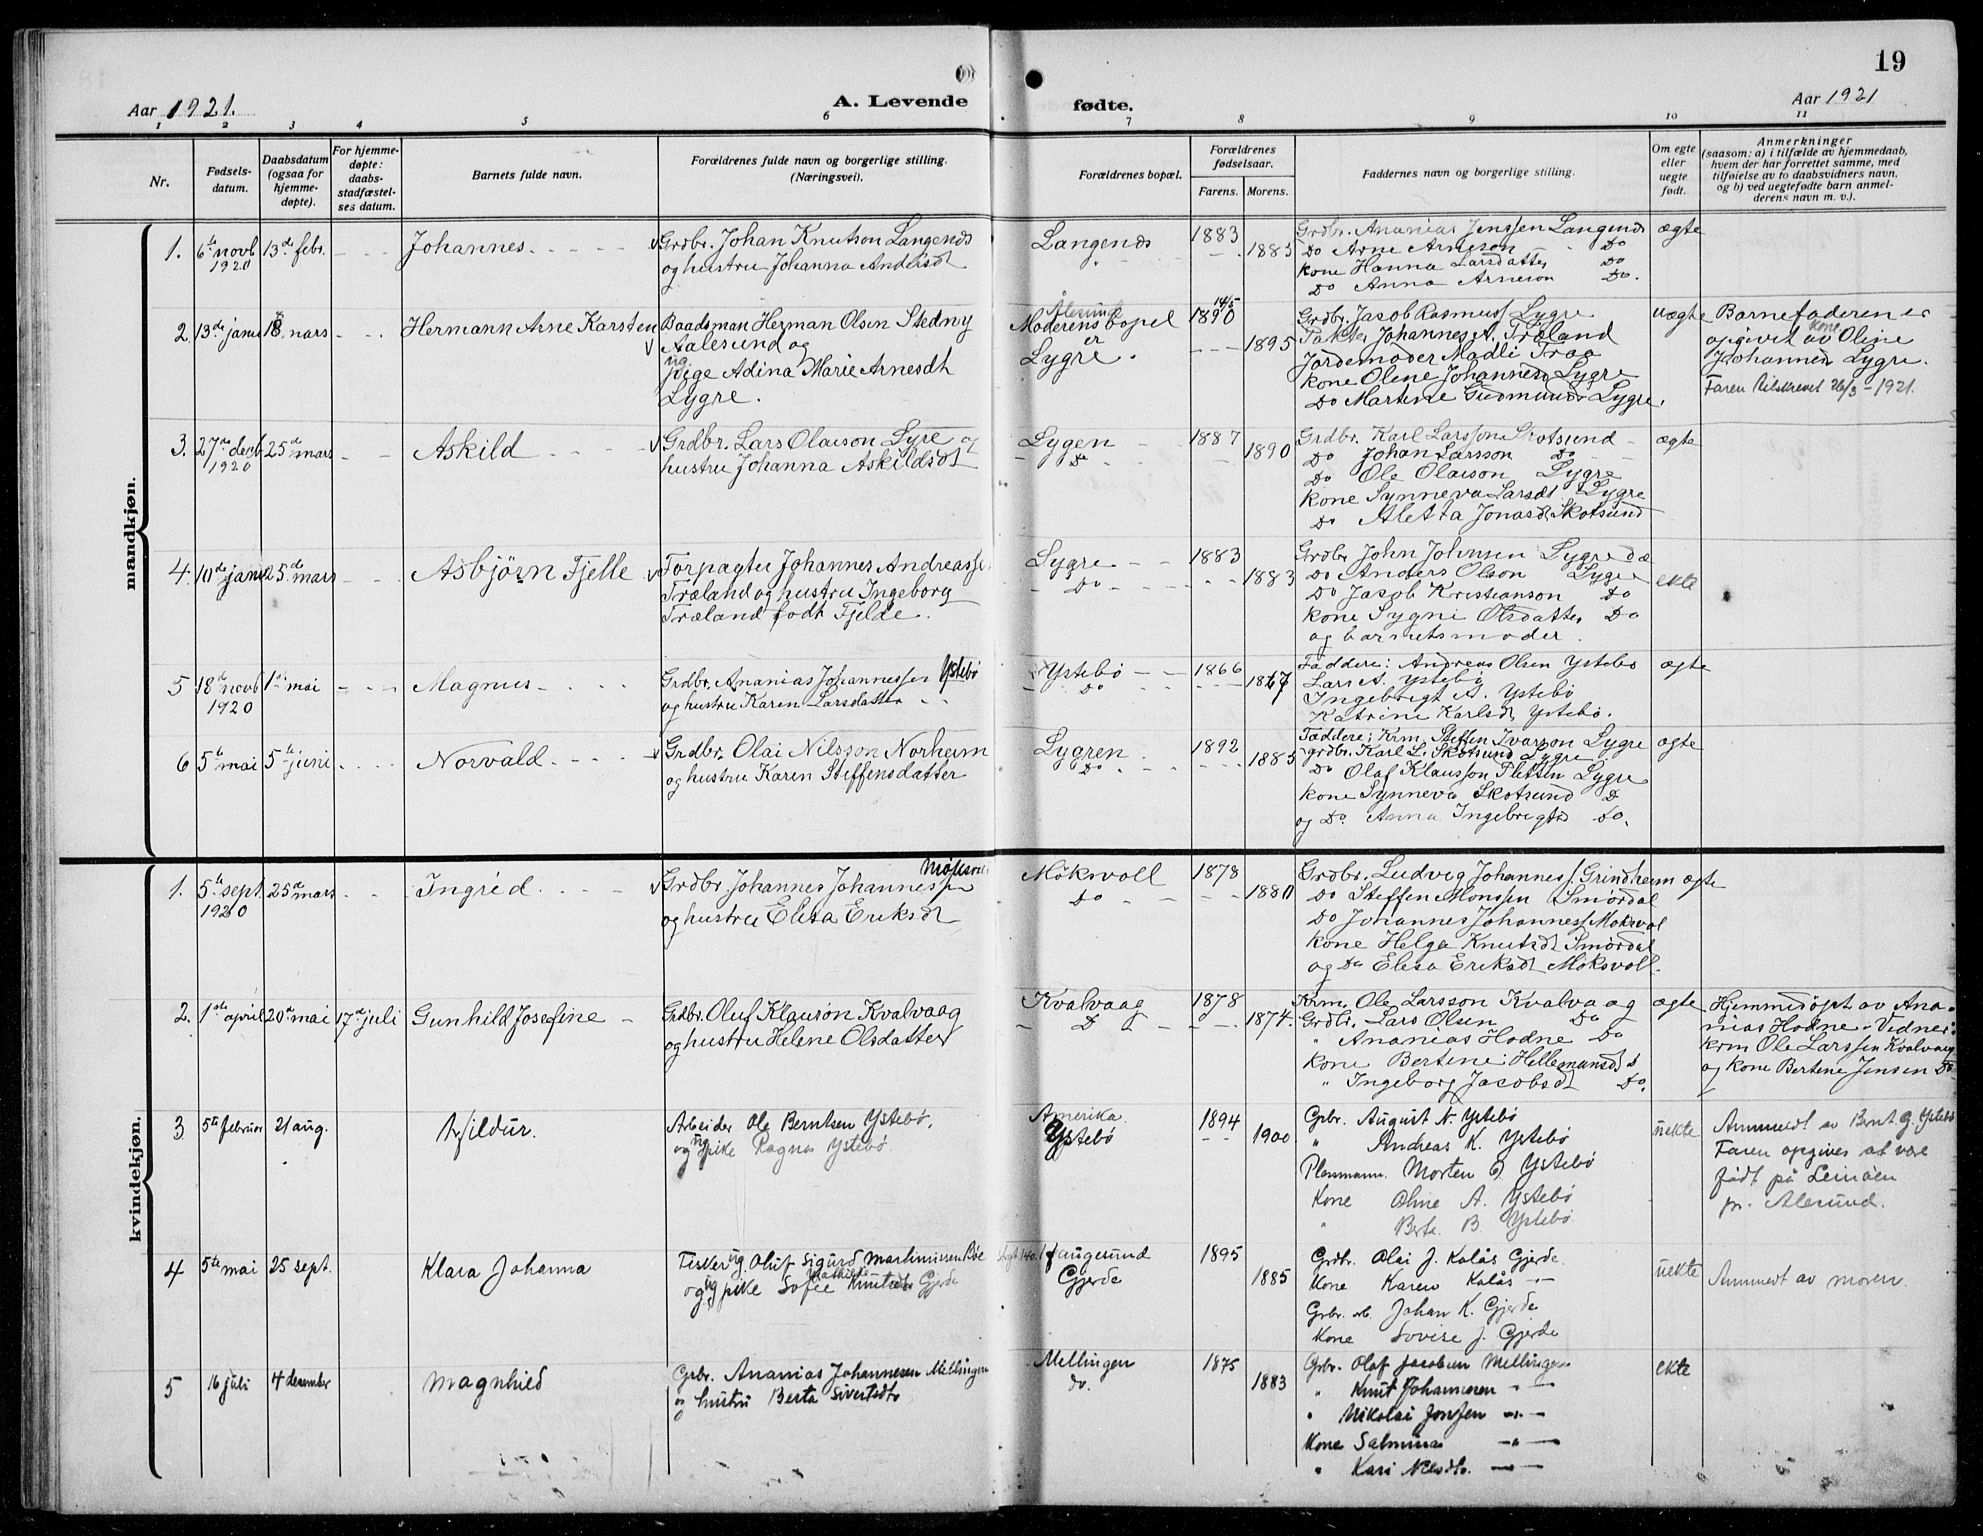 19
Aar 1921.
A. Levende
fødte.
Aar 1921
1 2 3 4 5 6 7 8 9 10 11
Nr.
Fødsels-
datum.
Daabsdatum
(ogsaa for
hjemme-
døpte).
For hjemme-
døpte:
daabs-
stadfæstel-
ses datum.
Barnets fulde navn.
Forældrenes fulde navn og borgerlige stilling.
(Næringsvei).
Forældrenes bopæl.
Forældrenes
fødselsaar.
Farens.
Morens.
Faddernes navn og borgerlige stilling.
Om egte
eller
uegte
født.
Anmerkninger
(saasom: a) i tilfælde av hjemmedaab,
hvem der har forrettet samme, med
tilføielse av to daabsvidners navn,
og b) ved uegtefødte barn anmel-
derens navn m. v.).
mandkjøn.
1. 6te novb 1920 13de febr. Johannes
Grdbr. Johan Knutson Langenes
og hustru Johanna Andersdt
Langenes 1883 1885
Grdbr. Ananias Jenssen Langenes
Do Arne Arneson Do
Kone Hanna Larsdatter Do
Do Anna Arneson Do.
ægte
2. 13de janu 18 mars Hermann Arne Karsten
Baadsman Herman Olsen Stedny
Aalesund og
ug
pige Adina Marie Arnesdt
Lygre.
Ålesund
Moderens bopel
er
Lygre.
14/5
1890
1895
Grdbr. Jacob Rasmuss Lygre
Johannes A. Træland
Jordemoder Madli Traa
Kone Olene Johannesd Lygre
Do Martine Gudmunds Lygre.
uægte
Barnefaderen er
opgivet av kone Oline
Johannesd Lygre.
Faren tilskrevet 26/3 - 1921.
3. 27de decb 1920 25de mars Askild
Grdbr. Lars Olaison Lyre og
hustru Johanna Askildsdt
Lygen
Do
1887 1890
Grdbr. Karl Larsson Skotsund
Do Johan Larsson Do
Do Ole Olaison Lygre
Kone Synneva Larsdt Lygre
Do Aletta Jonasdt Skotsund
ægte
4. 10de janu 25de mars Asbjörn Fjelle
Forpagter Johannes Andreasse
Træland og hustru Ingeborg
Træland født Fjelde.
Lygre
Do
1883 1883
Grdbr John Johnsen Lygre
Do Anders Olson Lygre
Do Jacob Kristianson Do
Kone Sygni Olsdatter Do
og barnets moder.
ekte
5 18de novb 1920 1ste mai Magnus
Grdbr. Ananias Johannessen Ystebö
og hustru Karen Larsdatter
Ystebö
Do
1866 1867
Faddere: Andreas Olsen Ystebö
Lars A. Ystebö
Ingebrigt A. Ystebö
Katrine Karlsdt Ystebö.
ægte
6 5te mai 5te juni Norvald
Grdbr. Olai Nilsson Norheim
og hustru Karen Steffensdatter
Lygren.
Do
1892 1885
Faddere: Krm. Steffen Ivarson Lygre
grdbr. Karl L. Skotsund Lygre
Do Olaf Klausson Lygre
Kone Synneva Skotsund Do
og Do. Anna Ingebrigts Do.
ægte
kvindekjøn.
1. 5te sept. 1920 25de mars Ingrid
Grdbr Johannes Johannessen Möksvoll
og hustru Elisa Eriksdt
Möksvoll
Do
1878 1880
Grdbr. Ludvig Johanness. Grindheim
Do Steffen Monsen Smördal
Do Johannes Johanness Moksvol
Kone Helga Knutsdt Smördal
og Do Elesa Eriksdt Moksvoll.
ægte
2. 1ste april 20de mai 17de juli Gunhild Josefine
Grdbr. Oluf Klauson Kvalvaag
og hustru Helene Olsdatter
Kvalvaag
Do
1878 1874.
Krm. Ole Larsson Kvalvaag
Grdbr. Lars Olsen Do
" Ananias Hodne Do
Kone Bertine Hellemansdt
" Ingeborg Jacobsdt Do.
ægte
Hjemmedöpt av Ana-
nias Hodne. Vidner:
Krm Ole Larssen Kvalvaag
og Kone Bertine Jensen Do
3 5te februar 21 aug. Hjildur.
Arbeider Ole Berntsen Ystebö.
og ug pike Ragna Ystebö.
Amerika
Ystebö
1894 1900
Grbr. August N. Ystebö
" Andreas K. Ystebö
Morten Ystebö
Kone Oline A. Ystebö
" Berta B. Ystebö
uekte
Anmeldt av Bernt G. Ystebö
Faren opgives at være
födt på Leinöen
pr. Alesund.
4 5te mai 25 sept. Klara Johanna
Fisker ug. Oluf Sigurd Martinussen Böe
og ug pike Sofie Mathilde Knutsdt Gjerde
Haugesund
Gjerde
1895 1885
Grbr. Olai J. Kalås Gjerde.
Kone Karen Kalås -"-
Grbr. Johan K. Gjerde
Kone Lovise J. Gjerde
uekte
Anmeldt av moren.
5 16 juli 4 desember Magnhild
Grbr. Ananias Johannesen Mellingen
og hustru Berta Sivertsdtr
Mellingen
do.
1875 1883
Grbr. Olaf Jacobsen Mellingen
" Knut Johannesen -"-
" Nikolai Jonsen -"-
Kone Salmina -"-
" Kari Nilsdtr. -"-
ekte